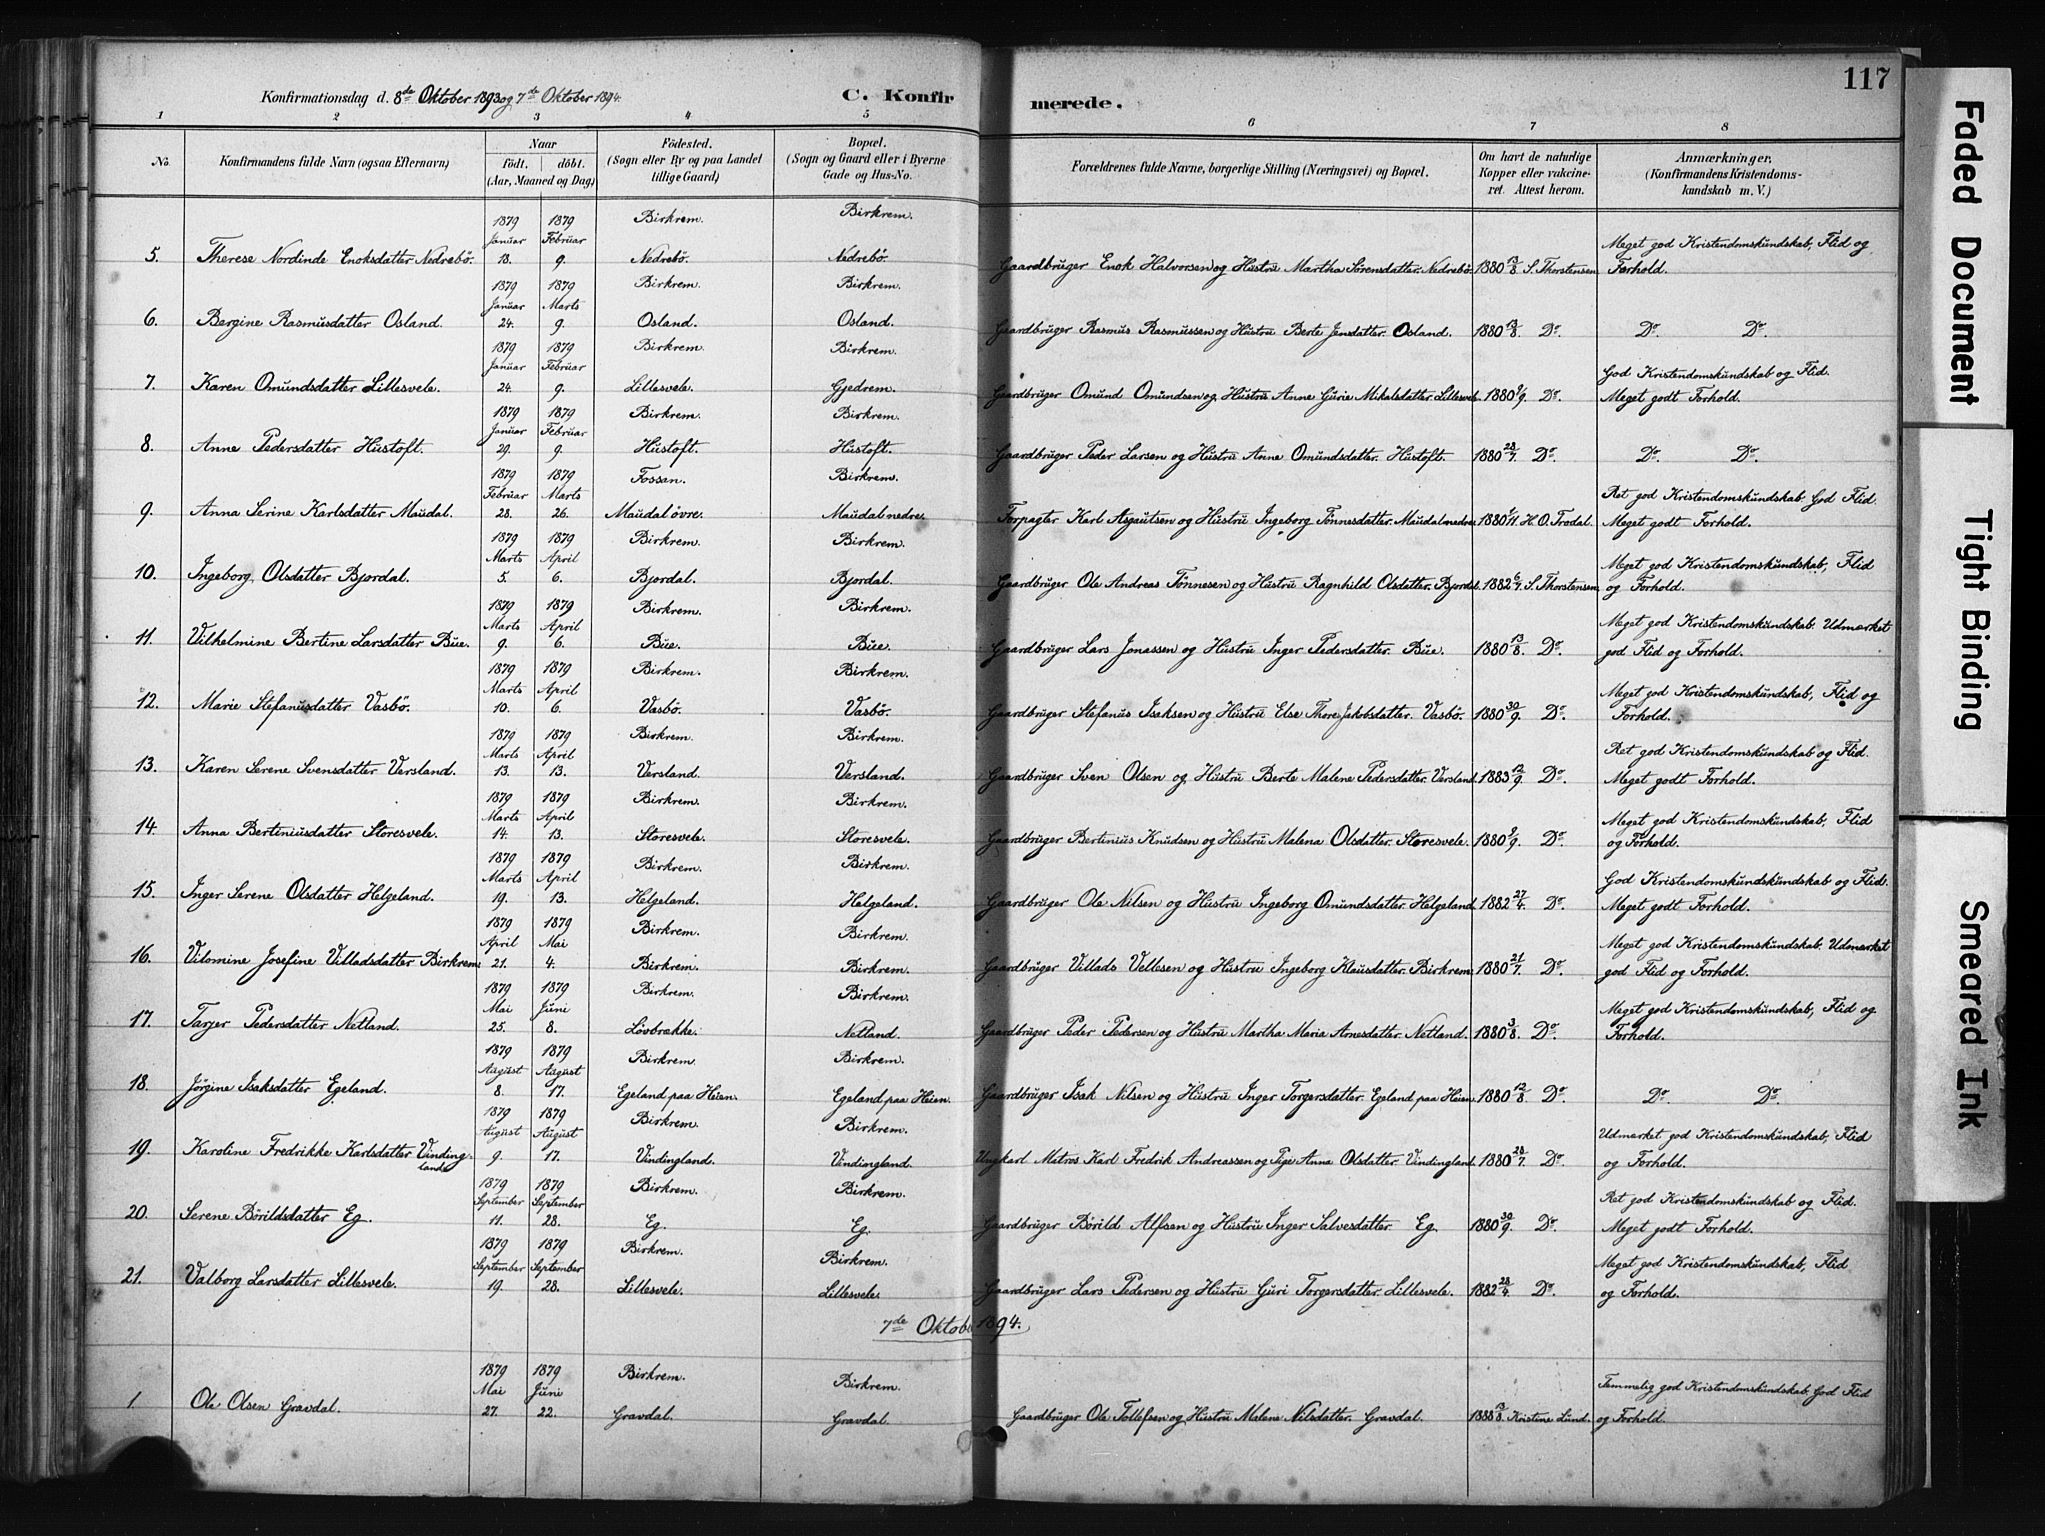 117
Konfirmationsdag d. 8de Oktober 1893 og 7de Oktober 1894. C. Konfirmerede.
1 2 3 4 5 6 7 8
No. Konfirmandens fulde Navn (ogsaa Efternavn) Naar födt. döbt. (Aar, Maaned og Dag) Födested. (Sogn eller By og paa Landet tillige Gaard) Bopæl. (Sogn og Gaard eller i Byerne Gade og Hus-No. Forældrenes fulde Navne, borgerlige Stilling (Næringsvei) og Bopæl. Om havt de naturlige Kopper eller vakcineret. Attest herom. Anmærkninger. (Konfirmandens Kristendomskundskab m. V.)
1879 1879 Birkrem. Birkrem.
Januar Februar Meget god Kristendomskundskab, Flid og
5. Therese Nordinde Enoksdatter Nedrebö. 18. 9. Nedrebö. Nedrebö. Gaardbruger Enok Halvorsen og Hustru Martha Sörensdatter. Nedrebö. 1880 13/8. S. Thorstensen. Forhold.
1879 1879 Birkrem. Birkrem.
Januar Marts
6. Bergine Rasmusdatter Osland. 24. 9. Osland. Osland. Gaardbruger Rasmus Rasmussen og Hustru Berte Jensdatter. Osland. 1880 13/8. Do. Do. Do.
1879 1879 Birkrem. Birkrem.
Januar Februar God Kristendomskundskab og Flid.
7. Karen Omundsdatter Lillesvele. 24. 9. Lillesvele. Gjedrem. Gaardbruger Omund Omundsen og Hustru Anne Gurie Mikalsdatter. Lillesvele. 1880 9/9. Do. Meget godt Forhold.
1879 1879 Birkrem. Birkrem.
Januar Februar
8. Anne Pedersdatter Hustoft. 29. 9. Hustoft. Hustoft. Gaardbruger Peder Larsen og Hustru Anne Omundsdatter. Hustoft. 1880 28/7. Do. Do. Do.
1879 1879 Fossan. Birkrem.
Februar Marts Ret god Kristendomskundskab. God Flid.
9. Anna Serine Karlsdatter Maudal. 28. 26. Maudal övre. Maudal nedre. Forpagter Karl Asgautsen og Hustru Ingeborg Tönnesdatter. Maudal nedre. 1880 H. O. Trodal. Meget godt Forhold.
1879 1879 Birkrem. Birkrem.
Marts April Meget god Kristendomskundskab, Flid
10. Ingeborg Olsdatter Bjordal. 5. 6. Bjordal. Bjordal. Gaardbruger Ole Andreas Tönnesen og Hustru Ragnhild Olsdatter. Bjordal. 1882 6/7. S. Thorstensen. og Forhold.
1879 1879 Birkrem. Birkrem.
Marts April Meget god Kristendomskundskab. Udmærket
11. Vilhelmine Bertine Larsdatter Bue. 9. 6. Bue. Bue. Gaardbruger Lars Jonassen og Hustru Inger Pedersdatter. Bue. 1880 13/8. Do. god Flid og Forhold.
1879 1879 Birkrem. Birkrem.
Marts April Meget god Kristendomskundskab, Flid og
12. Marie Stefanusdatter Vasbö. 10. 6. Vasbö. Vasbö. Gaardbruger Stefanus Isaksen og Hustru Else Thore Jakobsdatter. Vasbö. 1880 30/9. Do. Forhold.
1879 1879 Birkrem. Birkrem.
Marts April Ret god Kristendomskundskab og Flid.
13. Karen Serene Svensdatter Versland. 13. 13. Versland. Versland. Gaardbruger Sven Olsen og Hustru Berte Malene Pedersdatter. Versland. 1883 12/9. Do. Meget godt Forhold.
1879 1879 Birkrem. Birkrem.
Marts April Meget god Kristendomskundskab, Flid
14. Anna Bertiniusdatter Storesvele. 14. 13. Storesvele. Storesvele. Gaardbruger Bertinius Knudsen og Hustru Malena Olsdatter. Storesvele. 1880 9/9. Do. og Forhold.
1879 1879 Birkrem. Birkrem.
Marts April God Kristendomskundskundskab og Flid.
15. Inger Serene Olsdatter Helgeland. 19. 13. Helgeland. Helgeland. Gaardbruger Ole Nilsen og Hustru Ingeborg Omundsdatter. Helgeland. 1882 27/4. Do. Meget godt Forhold.
1879 1879 Birkrem. Birkrem.
April Mai Meget god Kristendomskundskab. Udmærket
16. Vilomine Josefine Villadsdatter Birkrem. 21. 4. Birkrem. Birkrem. Gaardbruger Villads Vellesen og Hustru Ingeborg Klausdatter. Birkrem. 1880 21/7. Do. god Flid og Forhold.
1879 1879 Birkrem. Birkrem.
Mai Juni Meget god Kristendomskundskab, Flid og
17. Tarjer Pedersdatter Netland. 25. 8. Lövbrække. Netland. Gaardbruger Peder Pedersen og Hustru Martha Maria Arnesdatter. Netland. 1880 3/8. Do. Forhold.
1879 1879 Birkrem. Birkrem.
August August
18. Jörgine Isaksdatter Egeland. 8. 17. Egeland paa Heien. Egeland paa Heien. Gaardbruger Isak Nilsen og Hustru Inger Torgersdatter. Egeland paa Heien. 1880 12/8. Do. Do. Do.
1879 1879 Birkrem. Birkrem.
August August Udmærket god Kristendomskundskab, Flid
19. Karoline Fredrikke Karlsdatter Vindingland. 9. 17. Vindingland. Vindingland. Ungkarl Matros Karl Fredrik Andreassen og Pige Anna Olsdatter. Vindingland. 1880 28/7. Do. og Forhold.
1879 1879 Birkrem. Birkrem.
September September Ret god Kristendomskundskab og Flid.
20. Serene Börildsdatter Eg. 11. 28. Eg. Eg. Gaardbruger Börild Alfsen og Hustru Inger Salvesdatter Eg. 1880 30/9. Do. Meget godt Forhold.
1879 1879 Birkrem. Birkrem.
September September Meget god Kristendomskundskab, Flid
21. Valborg Larsdatter Lillesvele. 19. 28. Lillesvele. Lillesvele. Gaardbruger Lars Pedersen og Hustru Guri Torgersdatter. Lillesvele. 1882 28/4. Do. og Forhold.
7de Oktober 1894.
1879 1879 Birkrem. Birkrem.
Mai Juni Temmelig god Kristendomskundskab. God Flid
1. Ole Olsen Gravdal. 27. 22. Gravdal. Gravdal. Gaardbruger Ole Tollefsen og Hustru Malene Nilsdatter. Gravdal. 1888 13/8. Kristine Lund. og Forhold.
Faded Document
Tight Binding
Smeared Ink